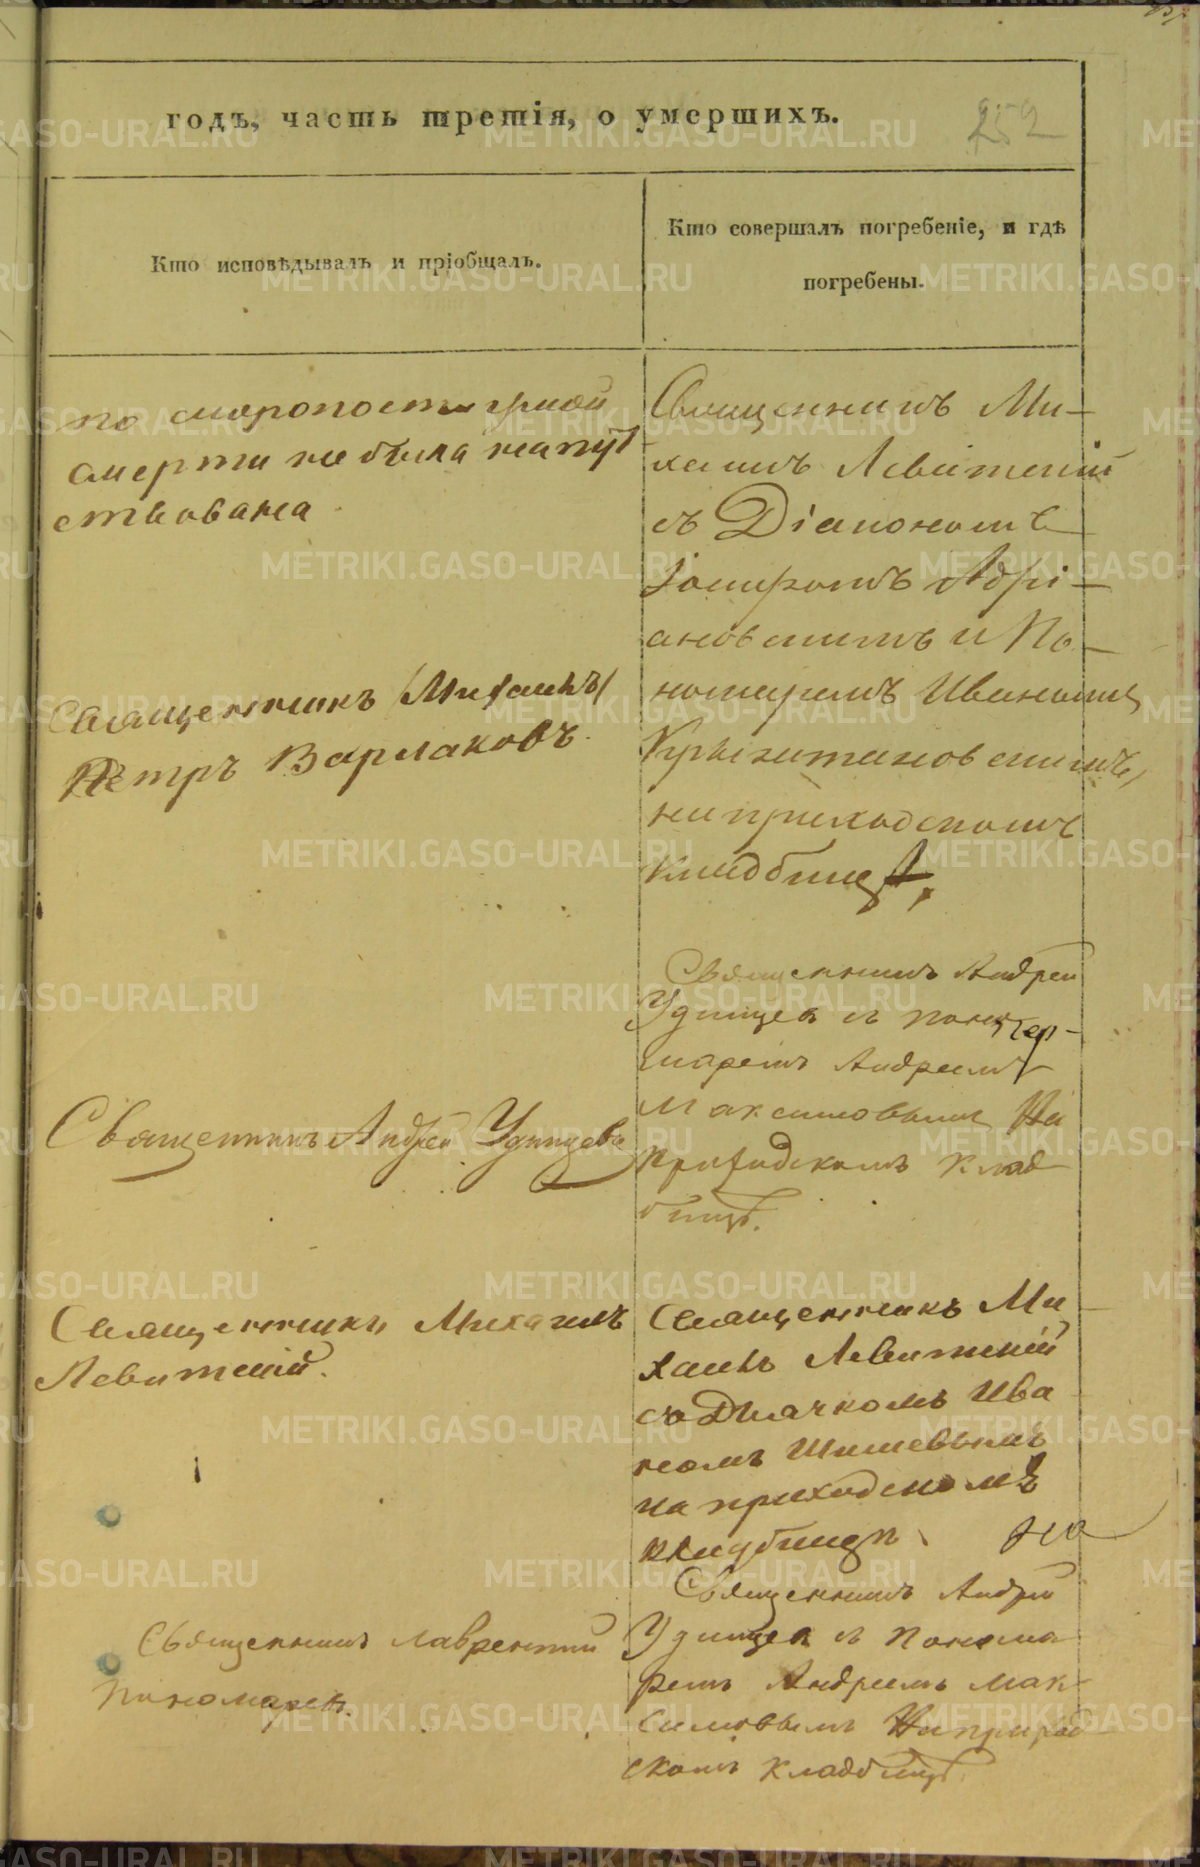 годъ, часть третія, о умершихъ.
252
Кто исповѣдывалъ и пріобщалъ.
Кто совершалъ погребеніе, и гдѣ
погребены.
по скоропостижной
смерти не была напут
ствована
Священникъ Ми-
хаилъ Левитскій
съ Діакономъ
Іосифомъ Адрі-
ановскимъ и По-
номаремъ Иваномъ
на приходскомъ
кладбищѣ,
Священникъ /Михаилъ/
Петръ Варлаковъ.
Священникъ Андрей
Удинцев съ Поно
марем Андреемъ
Максимовымъ На
приходскомъ клад
бищѣ.
Священникъ Андрей Удинцевъ
Священникъ Михаилъ
Левитскій.
Священникъ Ми
хаилъ Левитскій
съ Дьячкомъ Ива
номъ Шишевымъ
на приходскомъ
кладбищѣ. на
Священникъ Лаврентий
Пономарев.
Священникъ Андрей
Удинцев съ Понома
рем Андреемъ Мак
симовымъ На приход
скомъ кладбищѣ
METRIKI.GASO-URAL.RU